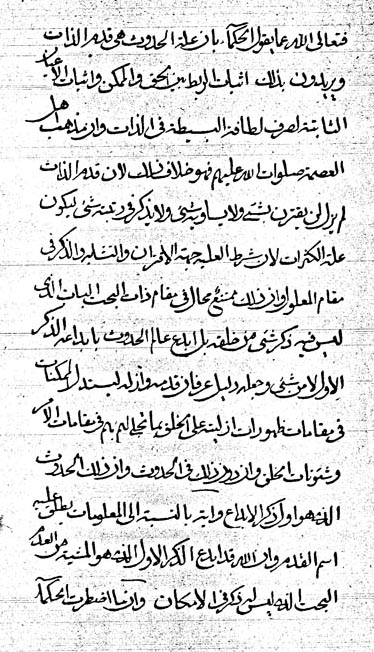 فتعالى الله عما يقول الحكماء بان علة الحدوث هى قدم الذات
ويريدون بذلك اثبات الربط بين الحق والممكن واثبات الاعيان
الثابتة لصرف لطافة البسيطة فى الذات وان مذهب اهل
العصمة صلوات الله عليهم فهو خلاف ذلك لان قدم الذات
لم يزل لن يقترن بشئ ولا يساويه شئ ولا يذكر فى رتبته شئ ليكون
علة الكثرات لان شرط العلية جهة الاقتران والتشابه والذكر فى
مقام المعلول وان ذلك ممتنع محال فى مقام ذات البحت البات الذى
ليس فيه ذكر شئ من خلقه بل ابدع عالم الحدوث بابداعه الذكر
الاول لا من شئ وجعله دليل عرفان قدمه وازله ليستدل الممكنات
فى مقامات ظهورات ازليته على الخلق بما تجلى لهم بهم فى مقامات الامر
وشئونات الخلق وان ذلك فى الحدوث وان ذلك الحدوث
الذى هو اول ذكر الابداع وانه بالنسبة الى المعلومات يطلق عليه
اسم القدم وان الله قد ابدع الذكر الاول الذى هو المشية من العدم
البحت الذى ليس له ذكر فى الامكان وان ما اضطرت الحكماء